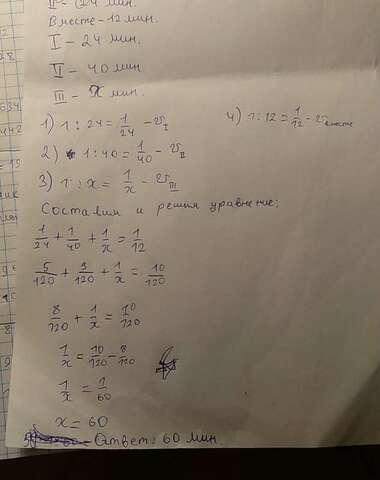 II - 24 мин.
Вместе - 12 мин.
I - 24 мин.
II - 40 мин
III - x мин.
1) 1 : 24 = 1/24 - v_I
4) 1 : 12 = 1/12 - v вместе
2) 1 : 40 = 1/40 - v_II
3) 1 : x = 1/x - v_III
Составим и решим уравнение:
1/24 + 1/40 + 1/x = 1/12
5/120 + 3/120 + 1/x = 10/120
8/120 + 1/x = 10/120
1/x = 10/120 - 8/120
1/x = 1/60
x = 60
Ответ: 60 мин.